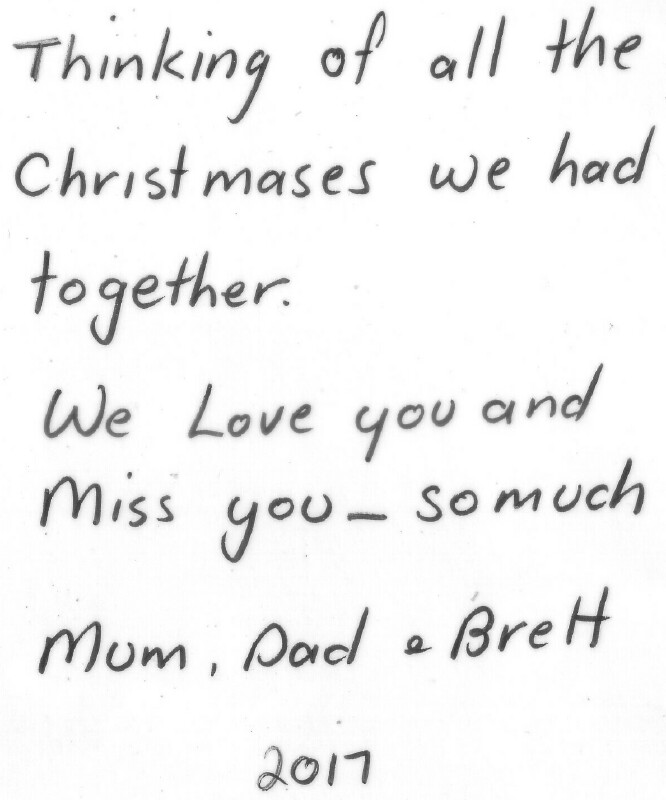 Thinking of all the
Christmases we had
together.
We Love you and
Miss you - so much
Mum, Dad & Brett
2017